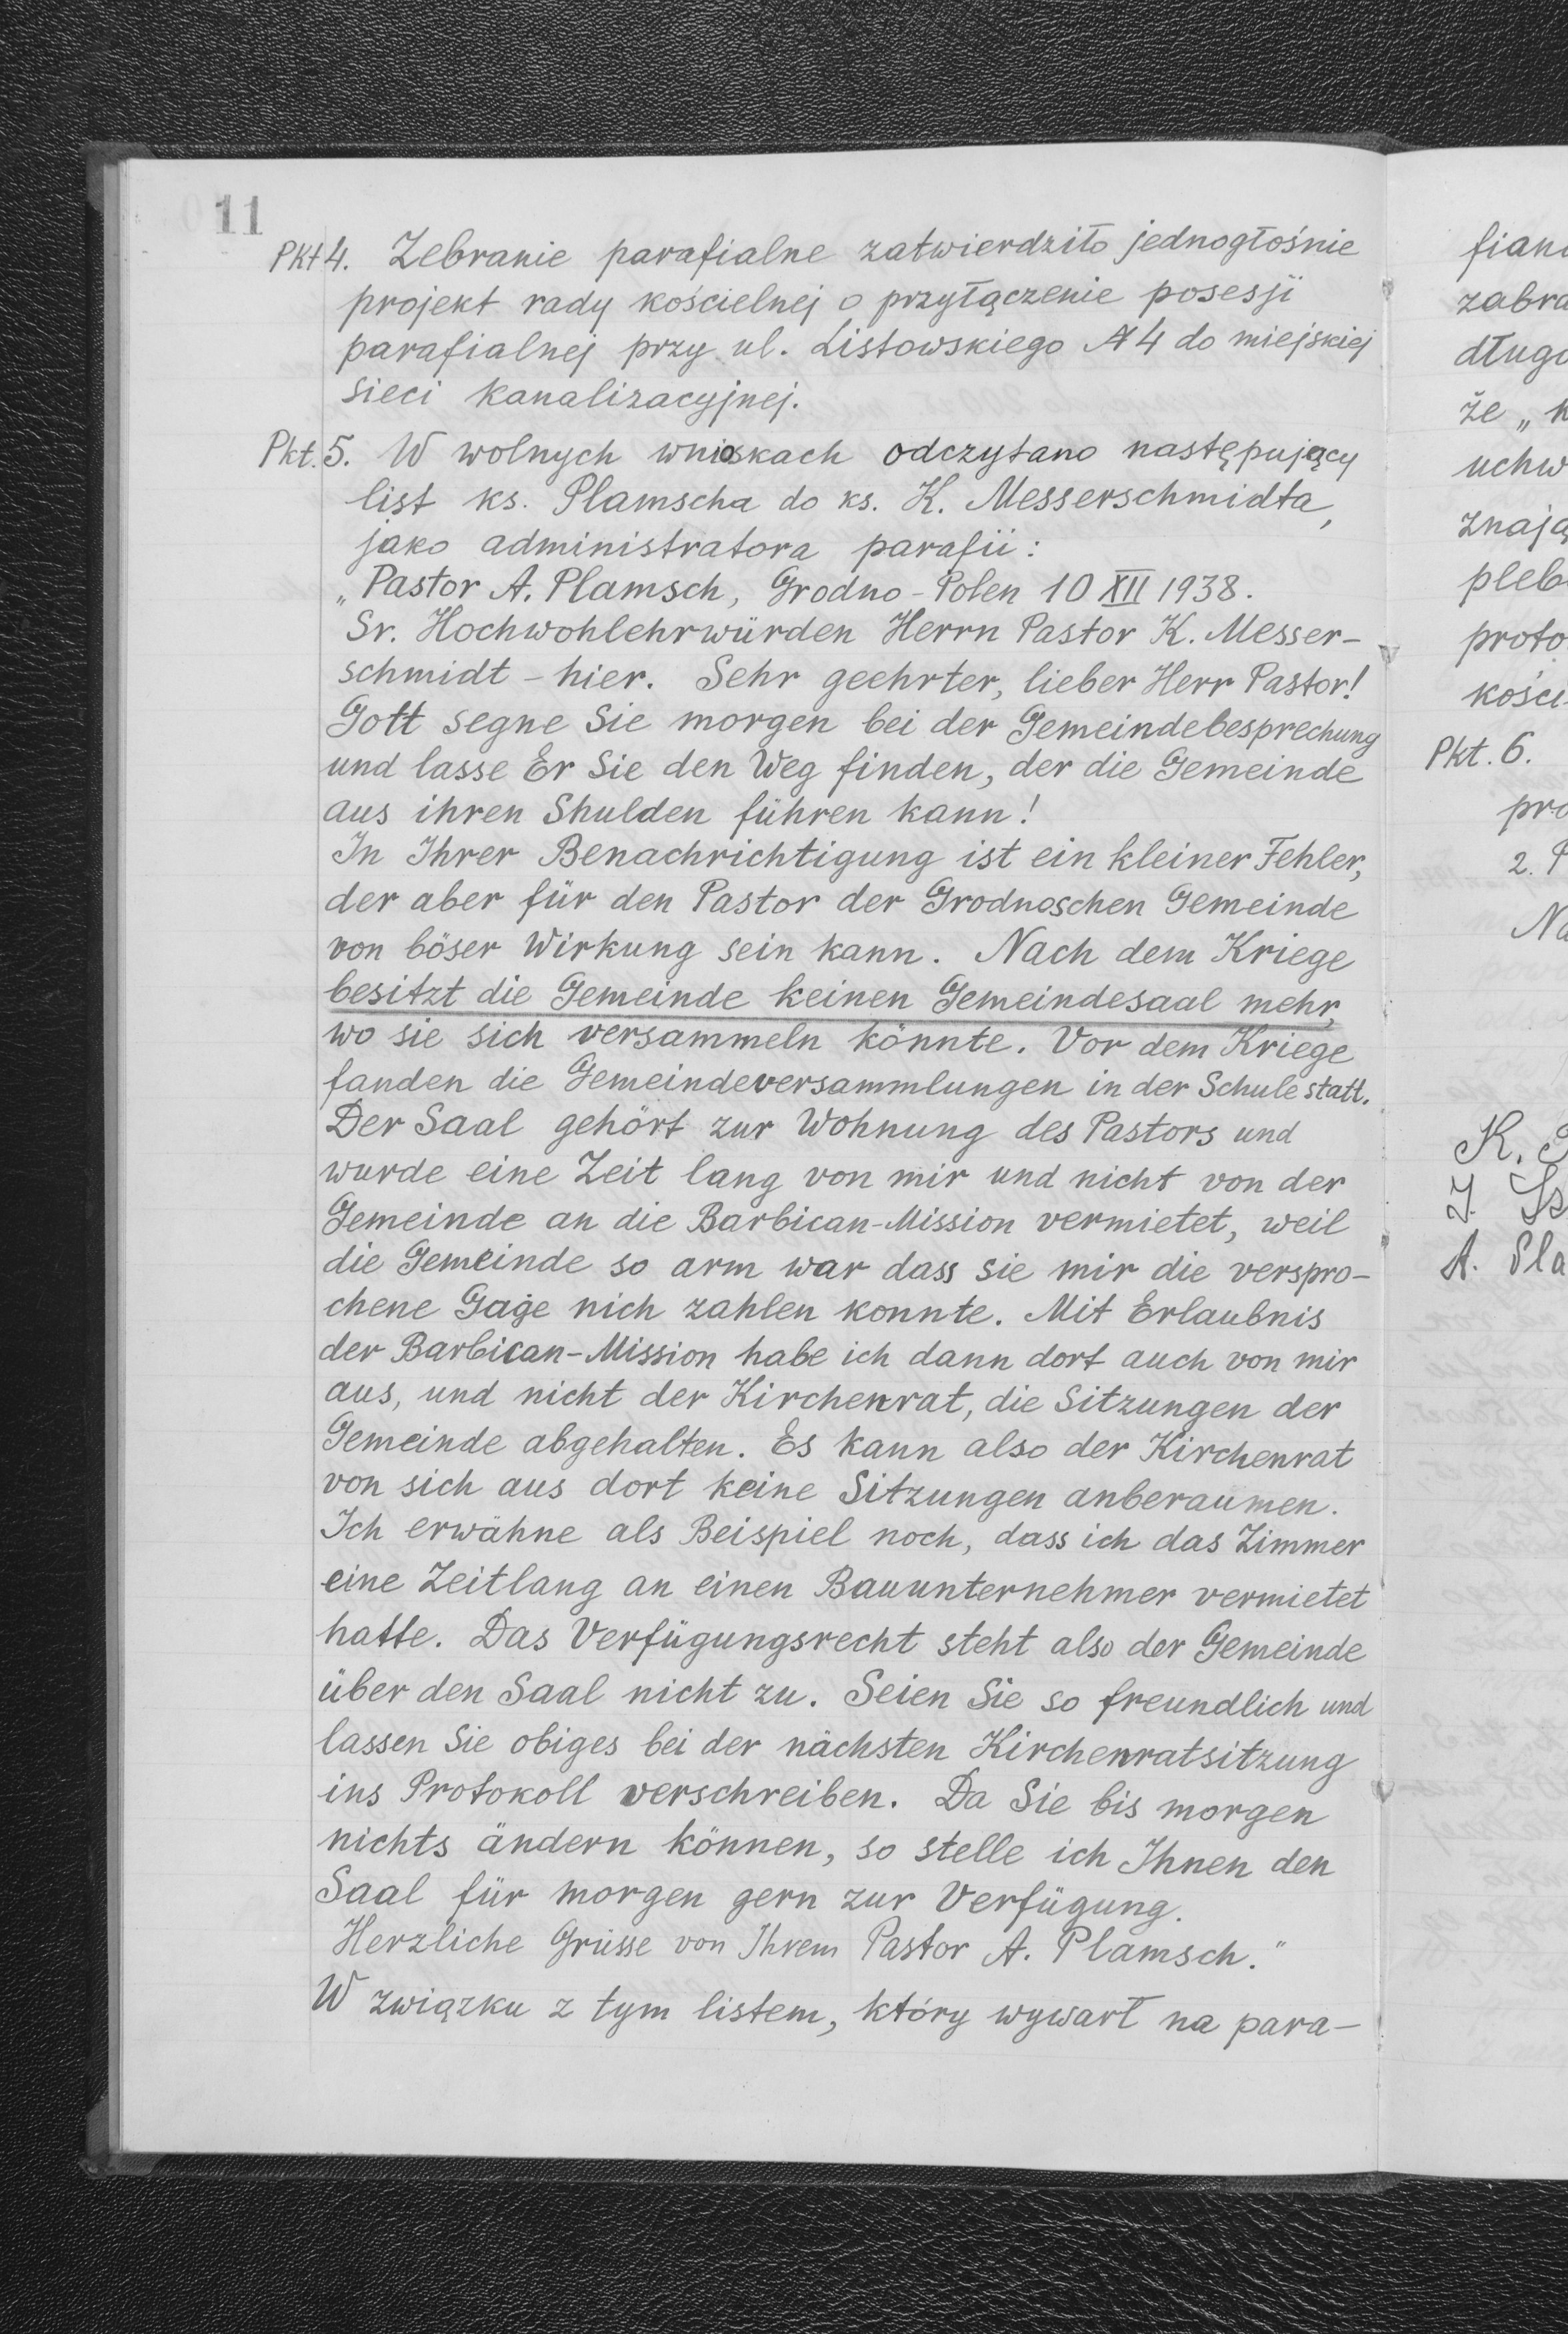 11
Pkt 4. Zebranie parafialne zatwierdziło jednogłośnie
projekt rady kościelnej o przyłączenie posesji
parafialnej przy ul. Listowskiego № 4 do miejskiej
sieci kanalizacyjnej.
Pkt. 5. W wolnych wnioskach odczytano następujący
list ks. Plamscha do ks. K. Messerschmidta,
jako administratora parafii:
„Pastor A. Plamsch, Grodno - Polen 10 XII 1938.
Sr. Hochwohlehrwürden Herrn Pastor K. Messer-
schmidt - hier. Sehr geehrter, lieber Herr Pastor!
Gott segne Sie morgen bei der Gemeindebesprechung
und lasse Er Sie den Weg finden, der die Gemeinde
aus ihren Shulden führen kann!
In Ihrer Benachrichtigung ist ein kleiner Fehler,
der aber für den Pastor der Grodnoschen Gemeinde
von böser Wirkung sein kann. Nach dem Kriege
besitzt die Gemeinde keinen Gemeindesaal mehr,
wo sie sich versammeln könnte. Vor dem Kriege
fanden die Gemeindeversammlungen in der Schule statt.
Der Saal gehört zur Wohnung des Pastors und
wurde eine Zeit lang von mir und nicht von der
Gemeinde an die Barbican-Mission vermietet, weil
die Gemeinde so arm war dass sie mir die verspro-
chene Gage nich zahlen konnte. Mit Erlaubnis
der Barbican-Mission habe ich dann dort auch von mir
aus, und nicht der Kirchenrat, die Sitzungen der
Gemeinde abgehalten. Es kann also der Kirchenrat
von sich aus dort keine Sitzungen anberaumen.
Ich erwähne als Beispiel noch, dass ich das Zimmer
eine Zeitlang an einen Bauunternehmer vermietet
hatte. Das Verfügungsrecht steht also der Gemeinde
über den Saal nicht zu. Seien Sie so freundlich und
lassen Sie obiges bei der nächsten Kirchenratsitzung
ins Protokoll verschreiben. Da Sie bis morgen
nichts ändern können, so stelle ich Ihnen den
Saal für morgen gern zur Verfügung.
Herzliche Grüsse von Ihrem Pastor A. Plamsch."
W związku z tym listem, który wywarł na para-
fian
zabra
długo
że „
uchw
znają
pleb
proto
kości
Pkt. 6.
pro
2. P
Na
K.
J.
A. Pla